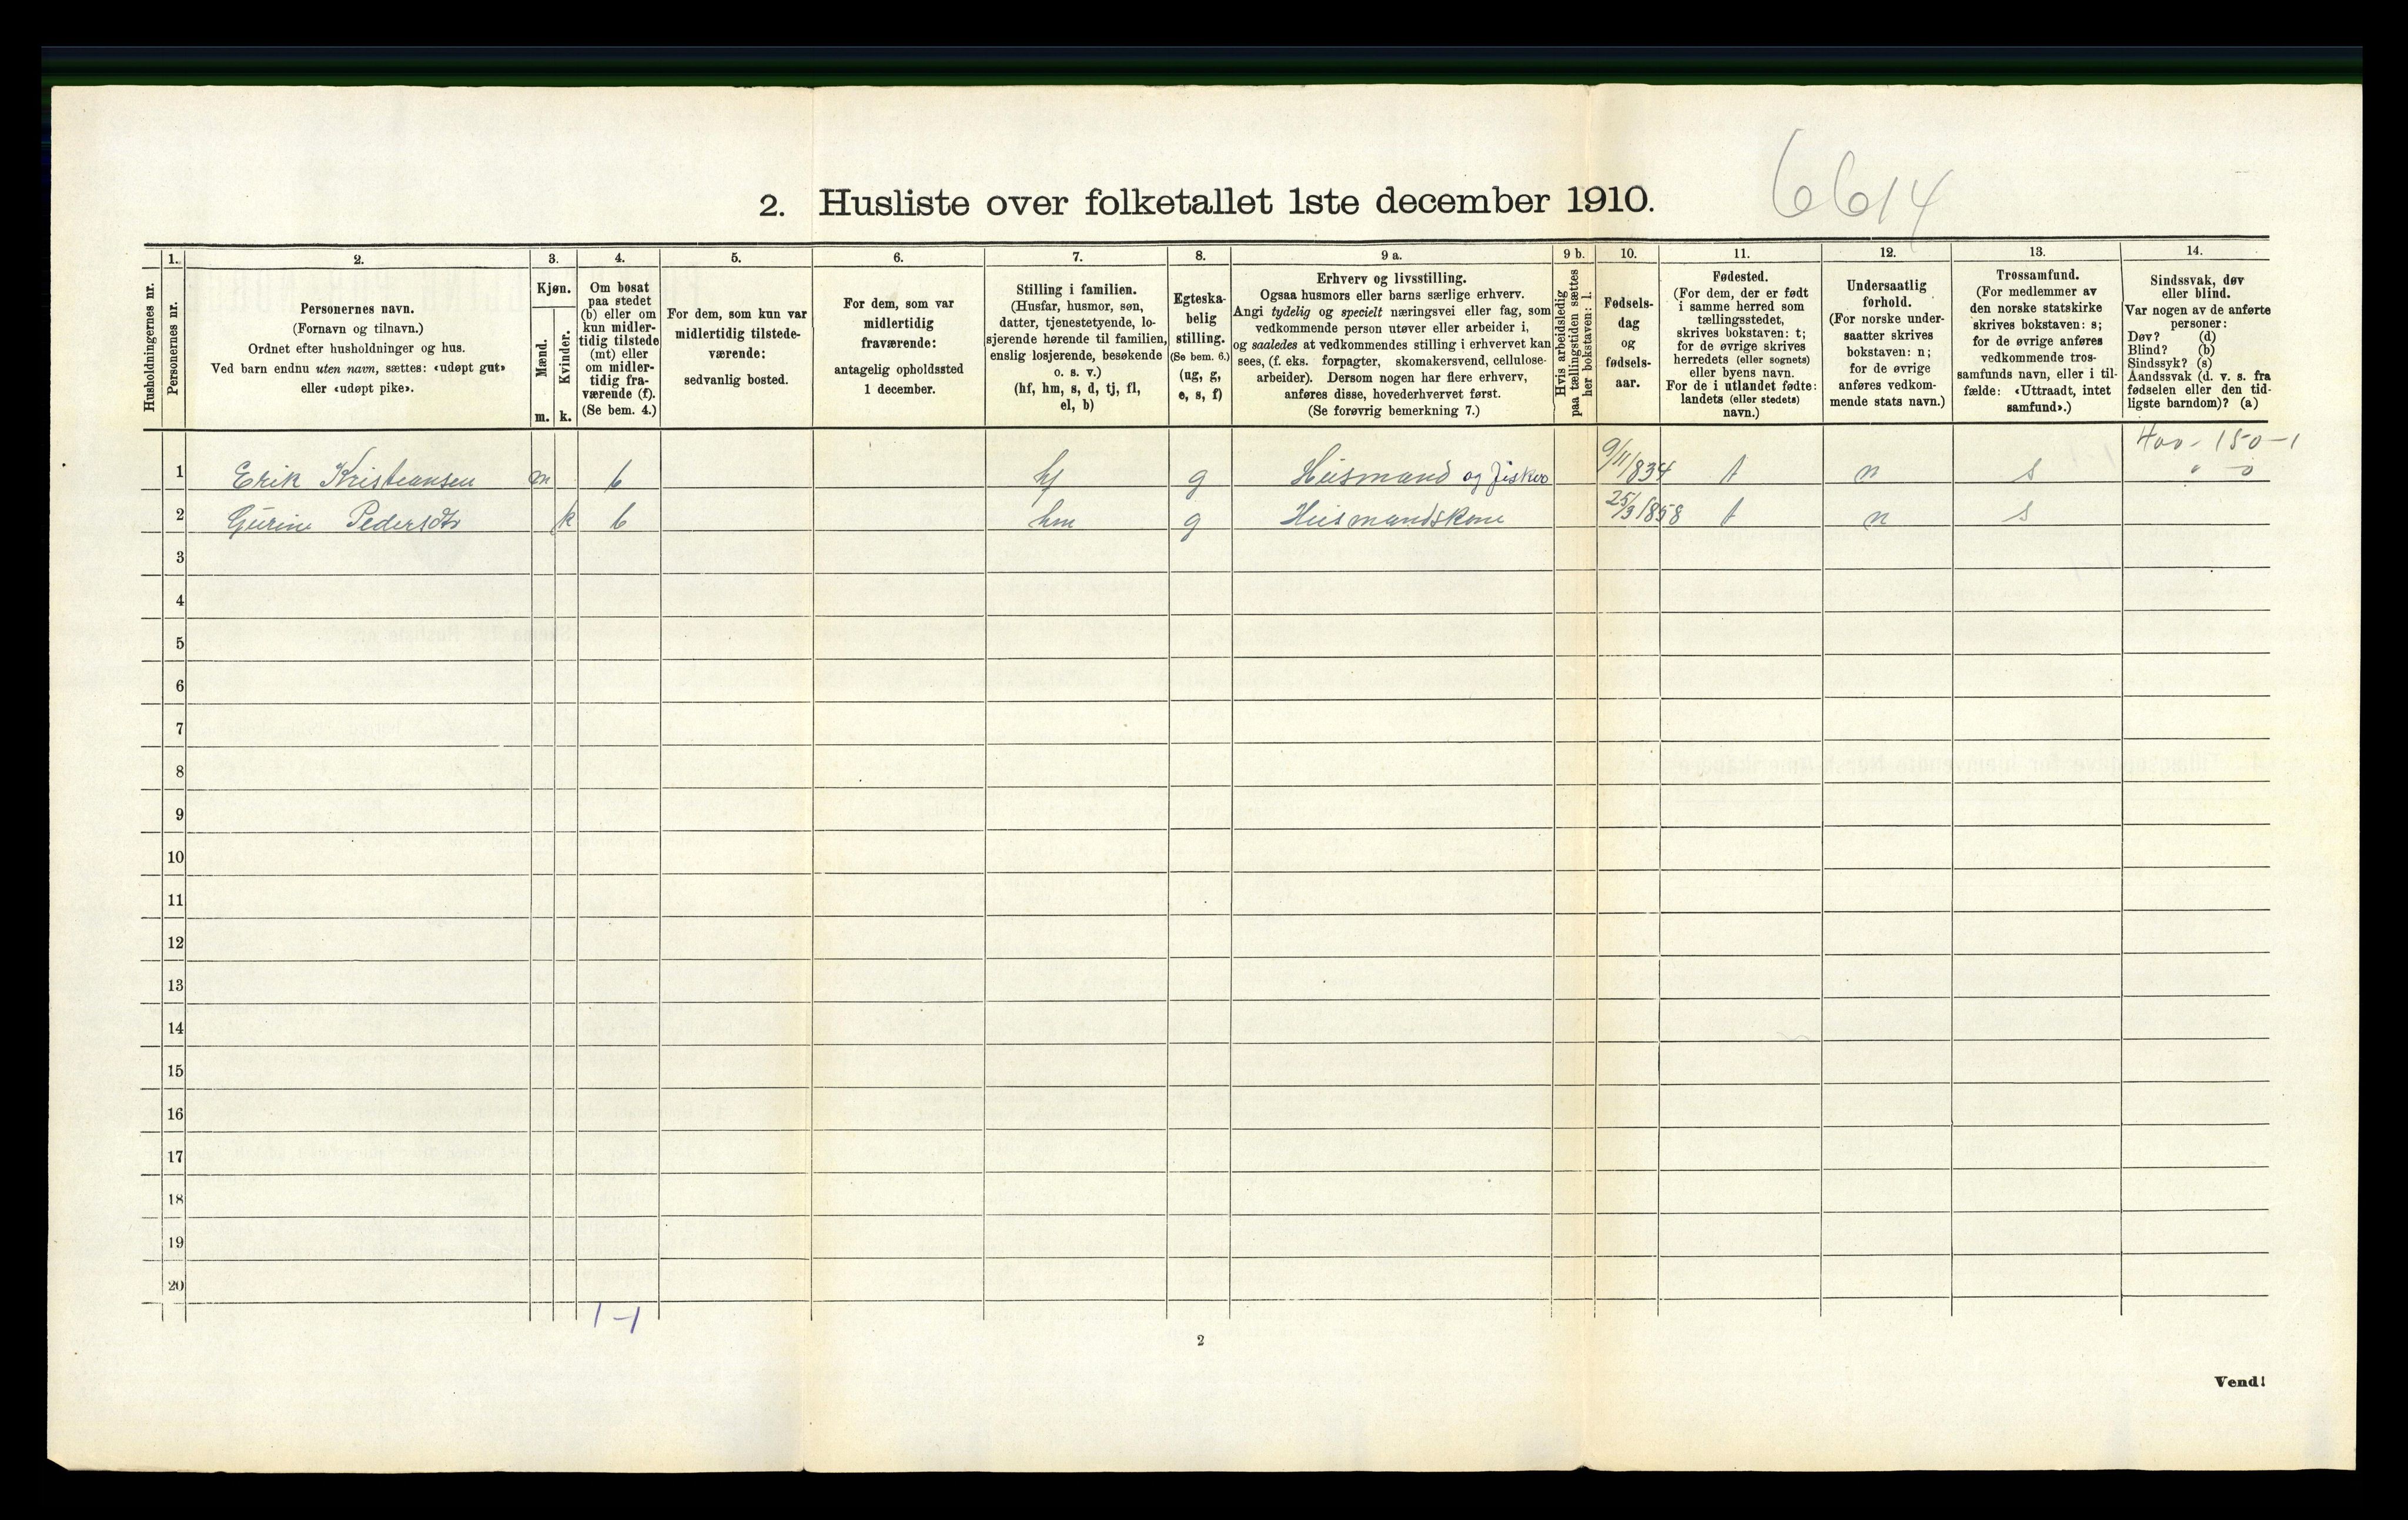 6614
2. Husliste over folketallet 1ste december 1910.
Husholdningernes nr.
1.
Personernes nr.
2.
Personernes navn.
(Fornavn og tilnavn.)
Ordnet efter husholdninger og hus.
Ved barn endnu uten navn, sættes: «udøpt gut»
eller «udøpt pike».
3.
Kjøn.
Mænd.
m.
Kvinder.
k.
4.
Om bosat
paa stedet
(b) eller om
kun midler-
tidig tilstede
(mt) eller
om midler-
tidig fra-
værende (f).
(Se bem. 4.)
5.
For dem, som kun var
midlertidig tilstede-
værende:
sedvanlig bosted.
6.
For dem, som var
midlertidig
fraværende:
antagelig opholdssted
1 december.
7.
Stilling i familien.
(Husfar, husmor, søn,
datter, tjenestetyende, lo-
sjerende hørende til familien,
enslig losjerende, besøkende
o. s. v.)
(hf, hm, s, d, tj, fl,
el, b)
8.
Egteska-
belig
stilling.
(Se bem. 6.)
(ug, g,
e, s, f)
9 a.
Erhverv og livsstilling.
Ogsaa husmors eller barns særlige erhverv.
Angi tydelig og specielt næringsvei eller fag, som
vedkommende person utøver eller arbeider i,
og saaledes at vedkommendes stilling i erhvervet kan
sees, (f. eks. forpagter, skomakersvend, cellulose-
arbeider). Dersom nogen har flere erhverv,
anføres disse, hovederhvervet først.
(Se forøvrig bemerkning 7.)
9 b.
Hvis arbeidsledig
paa tællingstiden sættes
her bokstaven: l.
10.
Fødsels-
dag
og
fødsels-
aar.
11.
Fødested.
(For dem, der er født
i samme herred som
tællingsstedet,
skrives bokstaven: t;
for de øvrige skrives
herredets (eller sognets)
eller byens navn.
For de i utlandet fødte:
landets (eller stedets)
navn.)
12.
Undersaatlig
forhold.
(For norske under-
saatter skrives
bokstaven: n;
for de øvrige
anføres vedkom-
mende stats navn.)
13.
Trossamfund.
(For medlemmer av
den norske statskirke
skrives bokstaven: s;
for de øvrige anføres
vedkommende tros-
samfunds navn, eller i til-
fælde: «Uttraadt, intet
samfund».)
14.
Sindssvak, døv
eller blind.
Var nogen av de anførte
personer:
Døv? (d)
Blind? (b)
Sindssyk? (s)
Aandssvak (d. v. s. fra
fødselen eller den tid-
ligste barndom)? (a)
400 - 150 - 1
1 Erik Kristiansen m b hf g Husmand og fisker 9/11 1834 t n s
2 Gurine Pedersdtr k b hm g Husmandskone 25/3 1858 t n s
3
4
5
6
7
8
9
10
11
12
13
14
15
16
17
18
19
20
1-1
2
Vend!